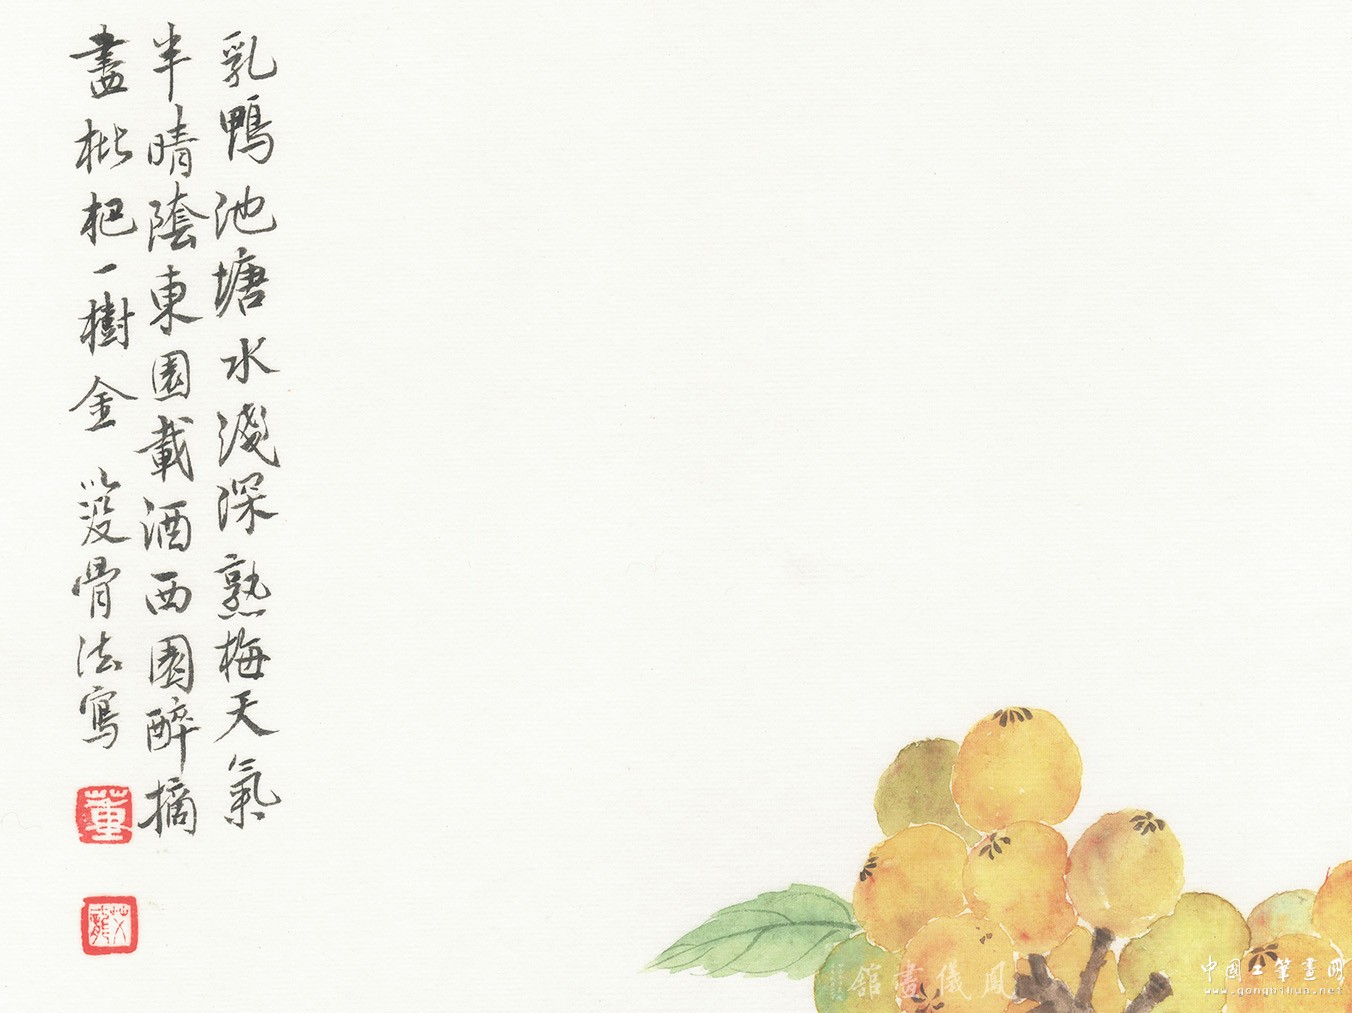 乳鴨池塘水淺深熟梅天氣
半晴陰東園載酒西園醉摘
盡枇杷一樹金 以沒骨法寫
董
艾龍
鳳儀畫館
中國工筆畫网
www.gongbihua.net